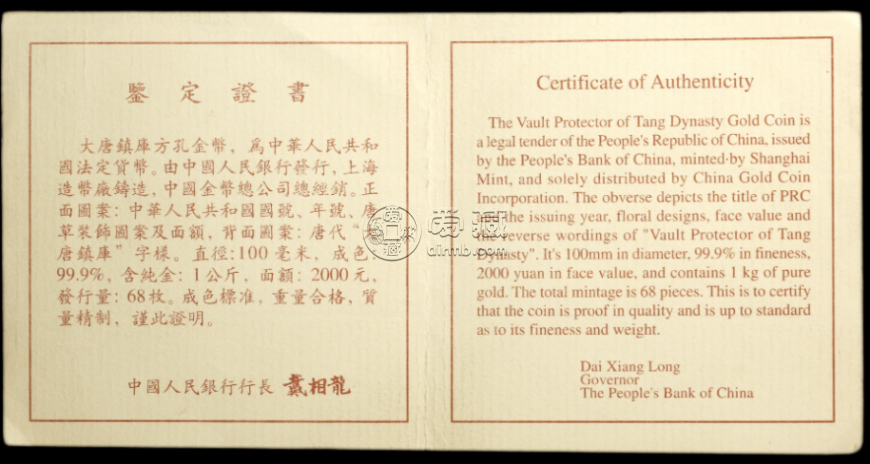 鑒定證書
大唐鎮庫方孔金幣，爲中華人民共和
國法定貨幣。由中國人民銀行發行，上海
造幣廠鑄造，中國金幣總公司總經銷。正
面圖案：中華人民共和國國號、年號，唐
草裝飾圖案及面額，背面圖案：唐代“大
唐鎮庫”字樣。直徑：100毫米，成色：
99.9%，含純金：1公斤，面額：2000元，
發行量：68枚。成色標准，重量合格，質
量精制，謹此證明。
中國人民銀行行長 戴相龍
Certificate of Authenticity
The Vault Protector of Tang Dynasty Gold Coin is
a legal tender of the People's Republic of China, issued
by the People's Bank of China, minted·by Shanghai
Mint, and solely distributed by China Gold Coin
Incorporation. The obverse depicts the title of PRC
and the issuing year, floral designs, face value and
the reverse wordings of "Vault Protector of Tang
Dynasty". It's 100mm in diameter, 99.9% in fineness,
2000 yuan in face value, and contains 1 kg of pure
gold. The total mintage is 68 pieces. This is to certify
that the coin is proof in quality and is up to standard
as to its fineness and weight.
Dai Xiang Long
Governor
The People's Bank of China